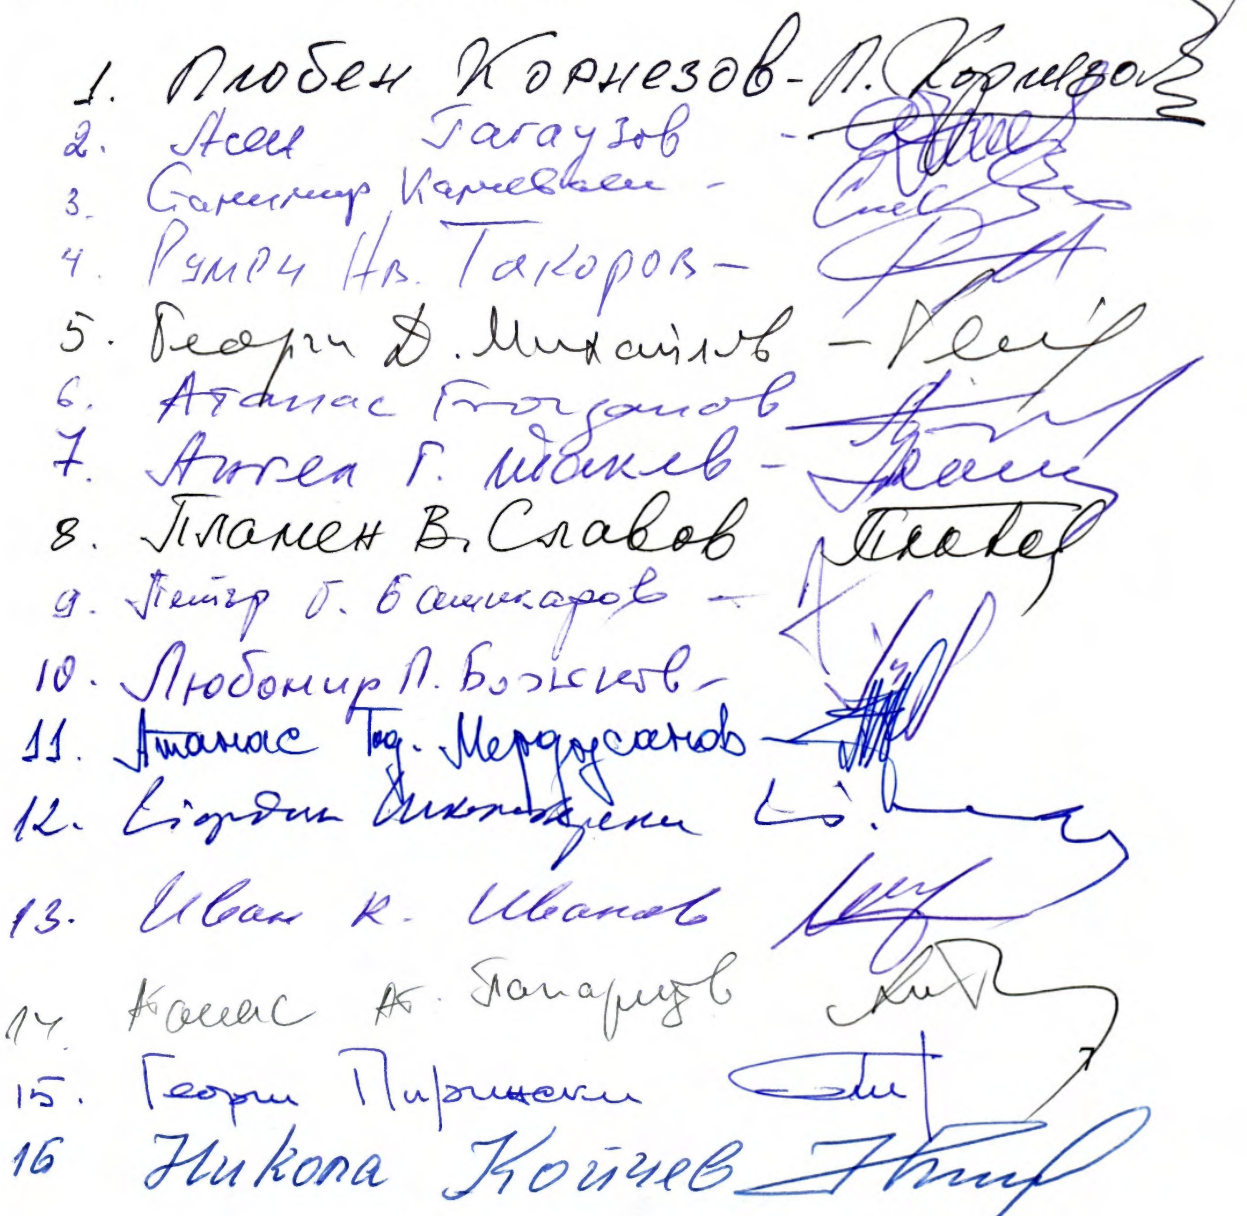 1. Любен Корнезов - Л. Корнезов
2. Асен Гагаузов -
3. Станимир -
4. Румен Ив. Такоров -
5. Георги Д. Михайлов -
6. Атанас Богданов
7. Ангел Г.
8. Пламен В. Славов
9. Петър Г. Башикаров -
10. Любомир П. Божков -
11. Атанас Тод. Мерджанов -
12. 
13. Иван К. Иванов
14. Атанас Ат. Папаризов
15. Георги Пирински
16 Никола Койчев